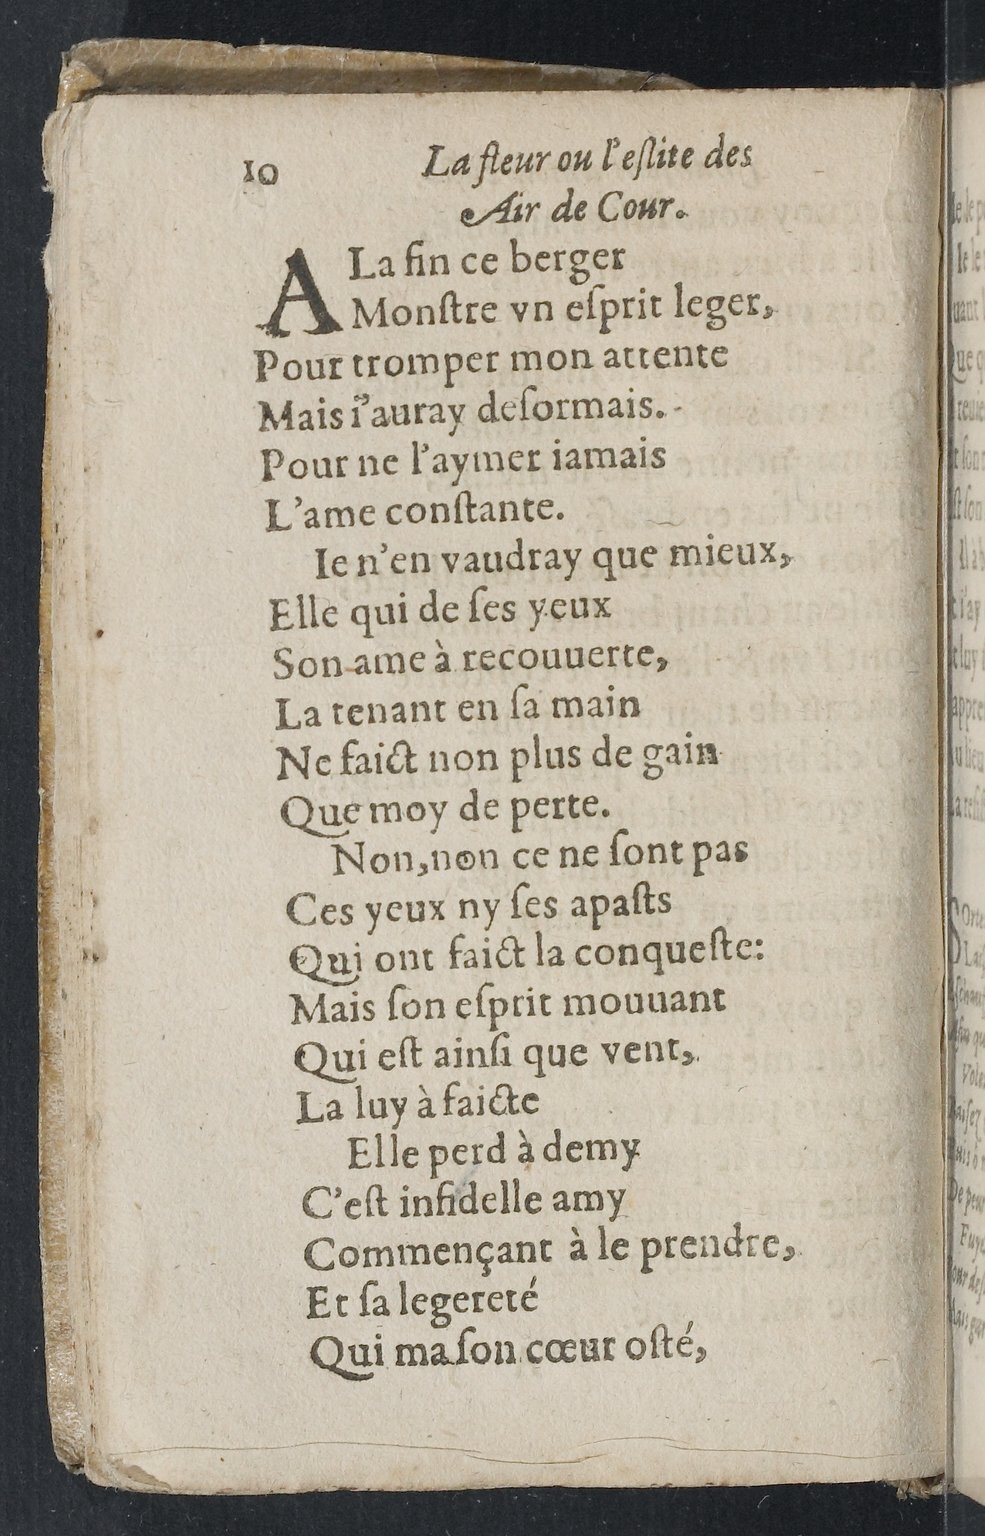 10 La fleur ou l'eſlite des
Air de Cour.
A La fin ce berger
Monſtre vn eſprit leger,
Pour tromper mon attente
Mais i'auray deſormais.
Pour ne l'aymer iamais
L'ame conſtante.
Ie n'en vaudray que mieux,
Elle qui de ſes yeux
Son ame à recouuerte,
La tenant en ſa main
Ne faict non plus de gain
Que moy de perte.
Non, non ce ne ſont pas
Ces yeux ny ſes apaſts
Qui ont faict la conqueſte:
Mais ſon eſprit mouuant
Qui eſt ainſi que vent,
La luy à faicte
Elle perd à demy
C'eſt infidelle amy
Commençant à le prendre,
Et ſa legereté
Qui ma ſon cœur oſté,